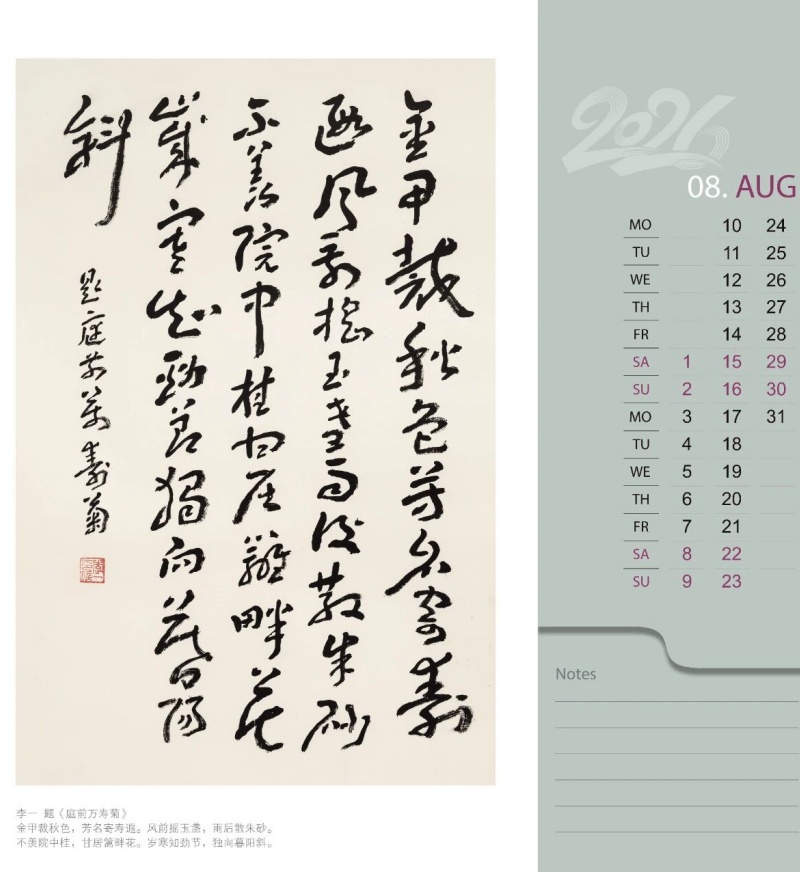 金甲裁秋色芳名寄壽
遐风前搖玉盞雨後散朱砂
不羨院中桂甘居籬畔花
歲寒知勁節獨向暮陽
斜
題庭前萬壽菊
李一 题《庭前万寿菊》
金甲裁秋色，芳名寄寿遐。风前摇玉盏，雨后散朱砂。
不羡院中桂，甘居篱畔花。岁寒知劲节，独向暮阳斜。
2026
08. AUG
MO 10 24
TU 11 25
WE 12 26
TH 13 27
FR 14 28
SA 1 15 29
SU 2 16 30
MO 3 17 31
TU 4 18
WE 5 19
TH 6 20
FR 7 21
SA 8 22
SU 9 23
Notes